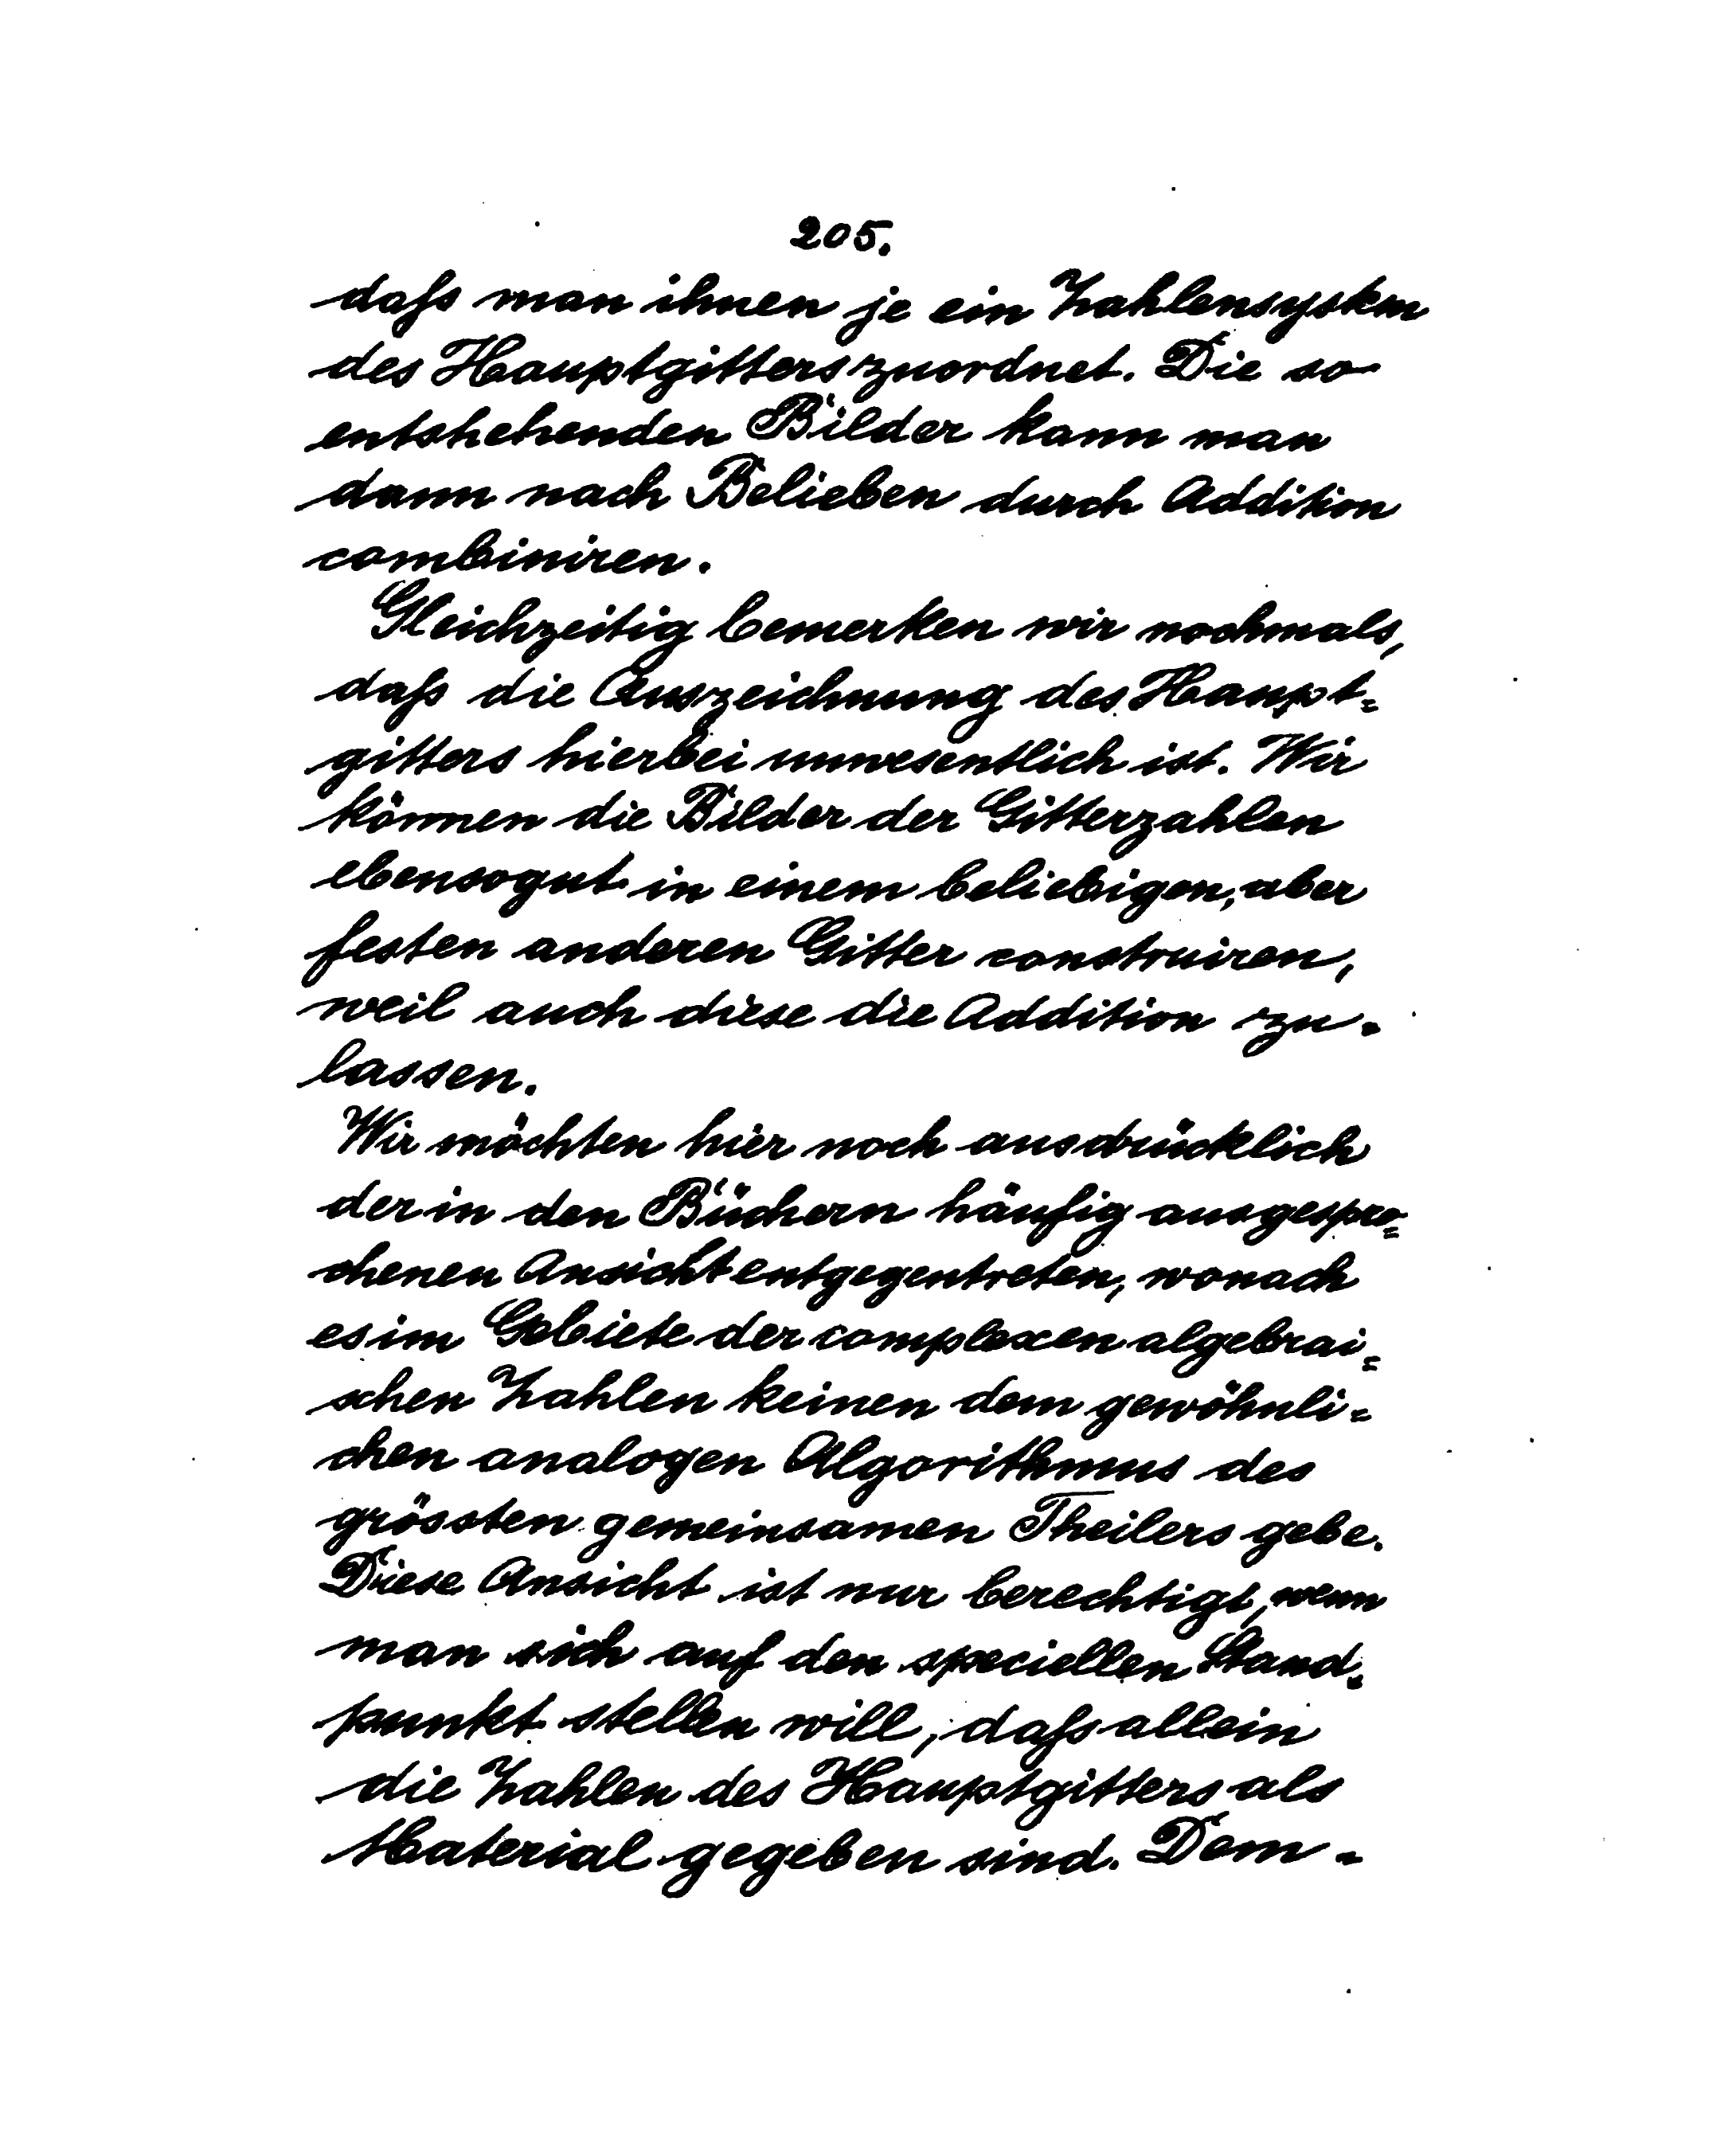 205.
daß man ihnen je ein Zahlensystem
des Hauptgitters zuordnet. Die so
entstehenden Bilder kann man
dann nach Belieben durch Addition
combiniren.
Gleichzeitig bemerken wir nochmals,
daß die Auszeichnung des Haupt=
gitters hierbei unwesentlich ist. Wir
können die Bilder der Gitterzahlen
ebensogut in einem beliebigen, aber
festen anderen Gitter construiren,
weil auch diese die Addition zu-
lassen.
Wir möchten hier noch ausdrücklich
der in den Büchern häufig ausgespro=
chenen Ansicht entgegentreten, wonach
es im Gebiete der complexen algebrai=
schen Zahlen keinen dem gewöhnli=
chen analogen Algorithmus des
grössten gemeinsamen Theilers gebe.
Diese Ansicht ist nur berechtigt, wenn
man sich auf den speciellen Stand=
punkt stellen will, daß allein
die Zahlen des Hauptgitters als
Material gegeben sind. Dem-